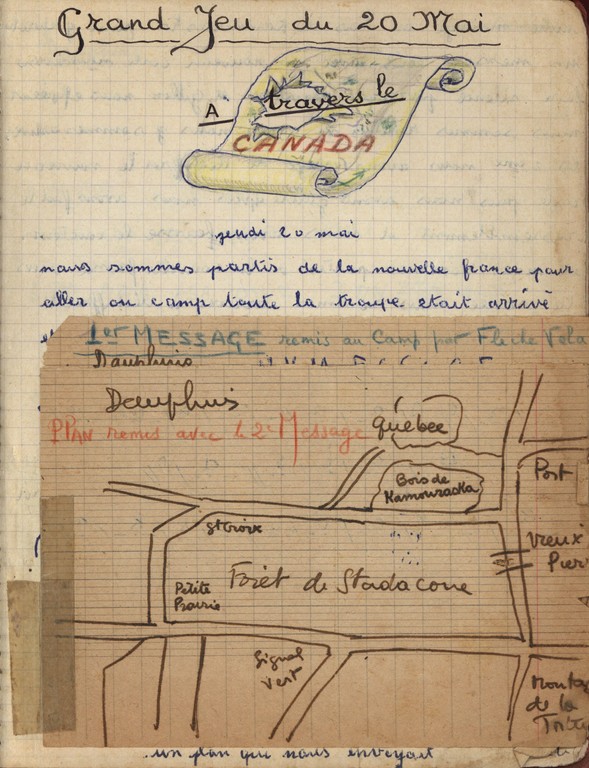 Grand Jeu du 20 Mai
A travers le
CANADA
jeudi 20 mai
nous sommes partis de la nouvelle france pour
aller au camp toute la troupe etait arrivé
1er MESSAGE remis au Camp par
Dauphins
Dauphins
PLAN remis avec le 2e Message
Québec
Bois de
Kamouraska
Port
St Croix
Vieux
Pier
Forêt de Stadacone
Petite
Prairie
Signal
Vert
de la
un plan qui nous envoyait